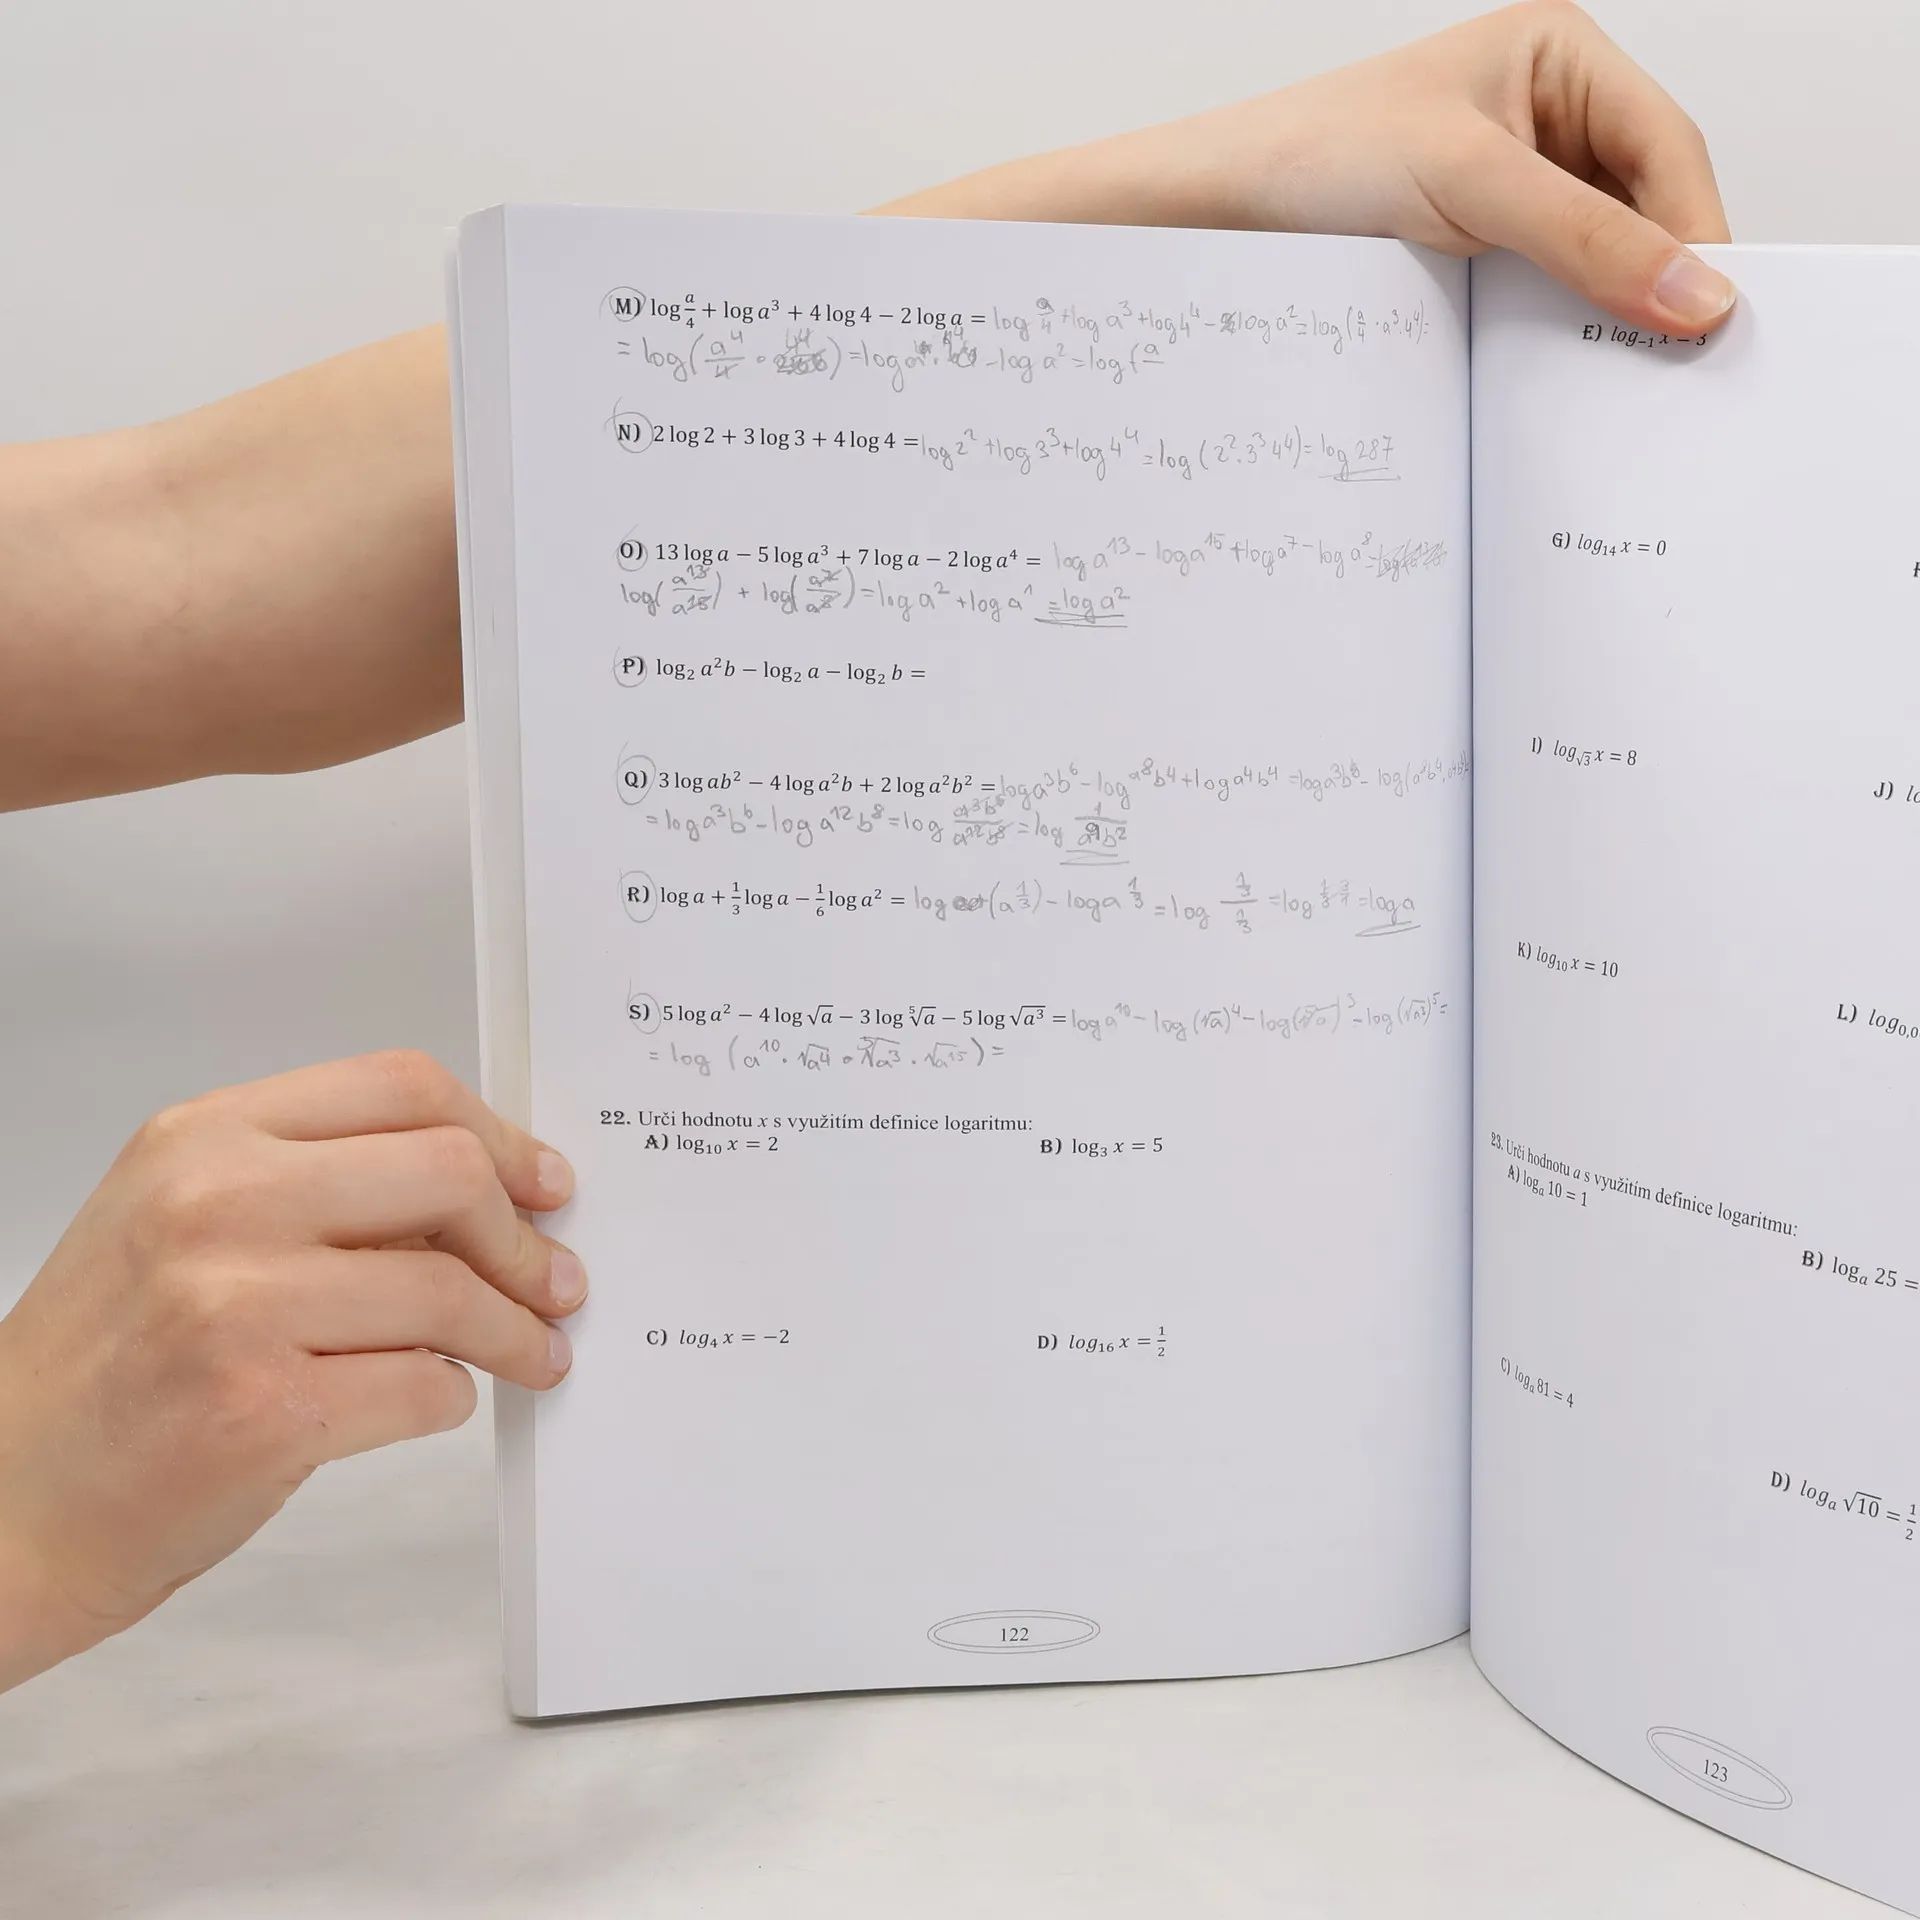 M) log a/4 + log a³ + 4 log 4 − 2 log a = log a/4 + log a³ + log 4⁴ − log a² = log (a/4 · a³ · 4⁴) =
= log( a⁴/4 · 4⁴ ) = log − log a² = log ( a
N) 2 log 2 + 3 log 3 + 4 log 4 = log 2² + log 3³ + log 4⁴ = log (2² · 3³ 4⁴) = log 287
O) 13 log a − 5 log a³ + 7 log a − 2 log a⁴ = log a¹³ − log a¹⁵ + log a⁷ − log a⁸ =
log( a¹³/a¹⁵ ) + log( a⁷/a⁸ ) = log a² + log a¹ = log a²
P) log₂ a²b − log₂ a − log₂ b =
Q) 3 log ab² − 4 log a²b + 2 log a²b² = log a³b⁶ − log a⁸b⁴ + log a⁴b⁴ = log a³b⁶ − log (a⁸b⁴ · a⁴b⁴)
= log a³b⁶ − log a¹²b⁸ = log a³b⁶/a¹²b⁸ = log 1/a⁹b²
R) log a + 1/3 log a − 1/6 log a² = log (a 1/3) − log a 1/3 = log 1/3 / 1/3 = log 1/3 3/1 = log a
S) 5 log a² − 4 log √a − 3 log ⁵√a − 5 log √a³ = log a¹⁰ − log (√a)⁴ − log (⁵√a)³ − log (√a³)⁵ =
= log (a¹⁰ · √a⁴ · ⁵√a³ · √a¹⁵) =
22. Urči hodnotu x s využitím definice logaritmu:
A) log₁₀ x = 2
B) log₃ x = 5
C) log₄ x = −2
D) log₁₆ x = 1/2
122
E) log₋₁ x − 3
G) log₁₄ x = 0
I) log√3 x = 8
J) lo
K) log₁₀ x = 10
L) log₀,₀
23. Urči hodnotu a s využitím definice logaritmu:
A) logₐ 10 = 1
B) logₐ 25 =
C) logₐ 81 = 4
D) logₐ √10 = 1/2
123